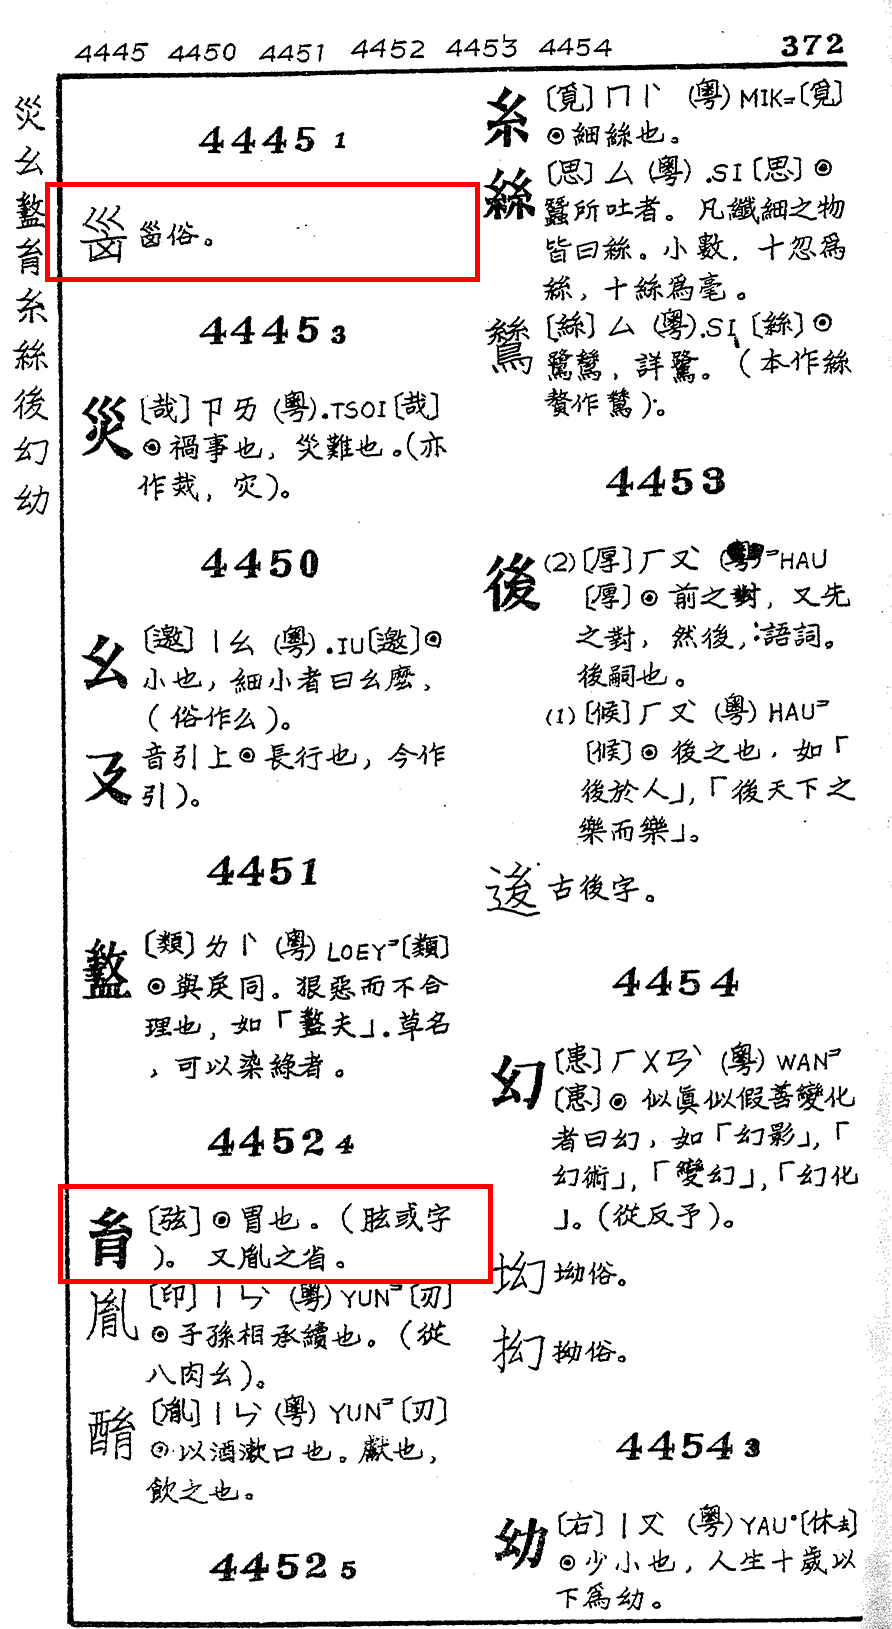 4445 4450 4451 4452 4453 4454 372
災
幺
盭
𦙍
糸
絲
後
幻
幼
4445 1
甾俗。
4445 3
災 〔哉〕ㄗㄞ (粵).TSOI〔哉〕
⊙禍事也，災難也。(亦
作烖，灾)。
4450
幺 〔邀〕ㄧㄠ (粵).IU〔邀〕⊙
小也，細小者曰幺麼，
(俗作么)。
音引上⊙長行也，今作
引)。
4451
盭 〔類〕ㄌㄧˋ (粵) LOEY=〔類〕
⊙與戾同。狠惡而不合
理也，如「盭夫」.草名
，可以染綠者。
4452 4
〔弦〕⊙胃也。(胘或字
)。又胤之省。
胤 〔印〕ㄧㄣˋ (粵) YUN=〔刃〕
⊙子孫相承續也。(從
八肉幺)。
酳 〔胤〕ㄧㄣˋ (粵) YUN=〔刃〕
⊙以酒漱口也。獻也，
飲之也。
4452 5
糸 〔覓〕ㄇㄧˋ (粵) MIK=〔覓〕
⊙細絲也。
絲 〔思〕ㄙ (粵) .SI〔思〕⊙
蠶所吐者。凡纖細之物
皆曰絲。小數，十忽爲
絲，十絲爲毫。
鷥 〔絲〕ㄙ (粵).SI〔絲〕⊙
鷺鷥，詳鷺。(本作絲
贅作鷥)。
4453
後 (2)〔厚〕ㄏㄡˋ (粵)=HAU
〔厚〕⊙前之對，又先
之對，然後，:語詞。
後嗣也。
(1)〔候〕ㄏㄡˋ (粵) HAU=
〔候〕⊙後之也．如「
後於人」,「後天下之
樂而樂」。
古後字。
4454
幻 〔患〕ㄏㄨㄢˋ (粵) WAN=
〔患〕⊙似眞似假善變化
者曰幻，如「幻影」,「
幻術」,「變幻」,「幻化
」。(從反予)。
坳俗。
拗俗。
4454 3
幼 〔右〕ㄧㄡˋ (粵) YAU•〔休去〕
⊙少小也，人生十歲以
下爲幼。